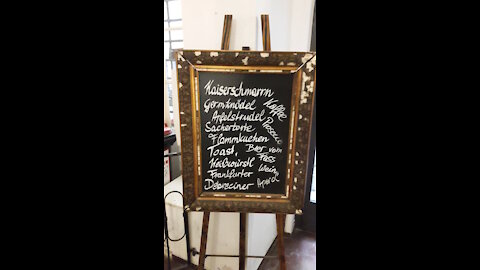 Kaiserschmarrn
Germknödel Kaffee
Apfelstrudel
Sachertorte Prosecco
Flammkuchen
Toast, Bier vom
Weißwürstl Fass
Frankfurter Wein
Debreziner Aperol